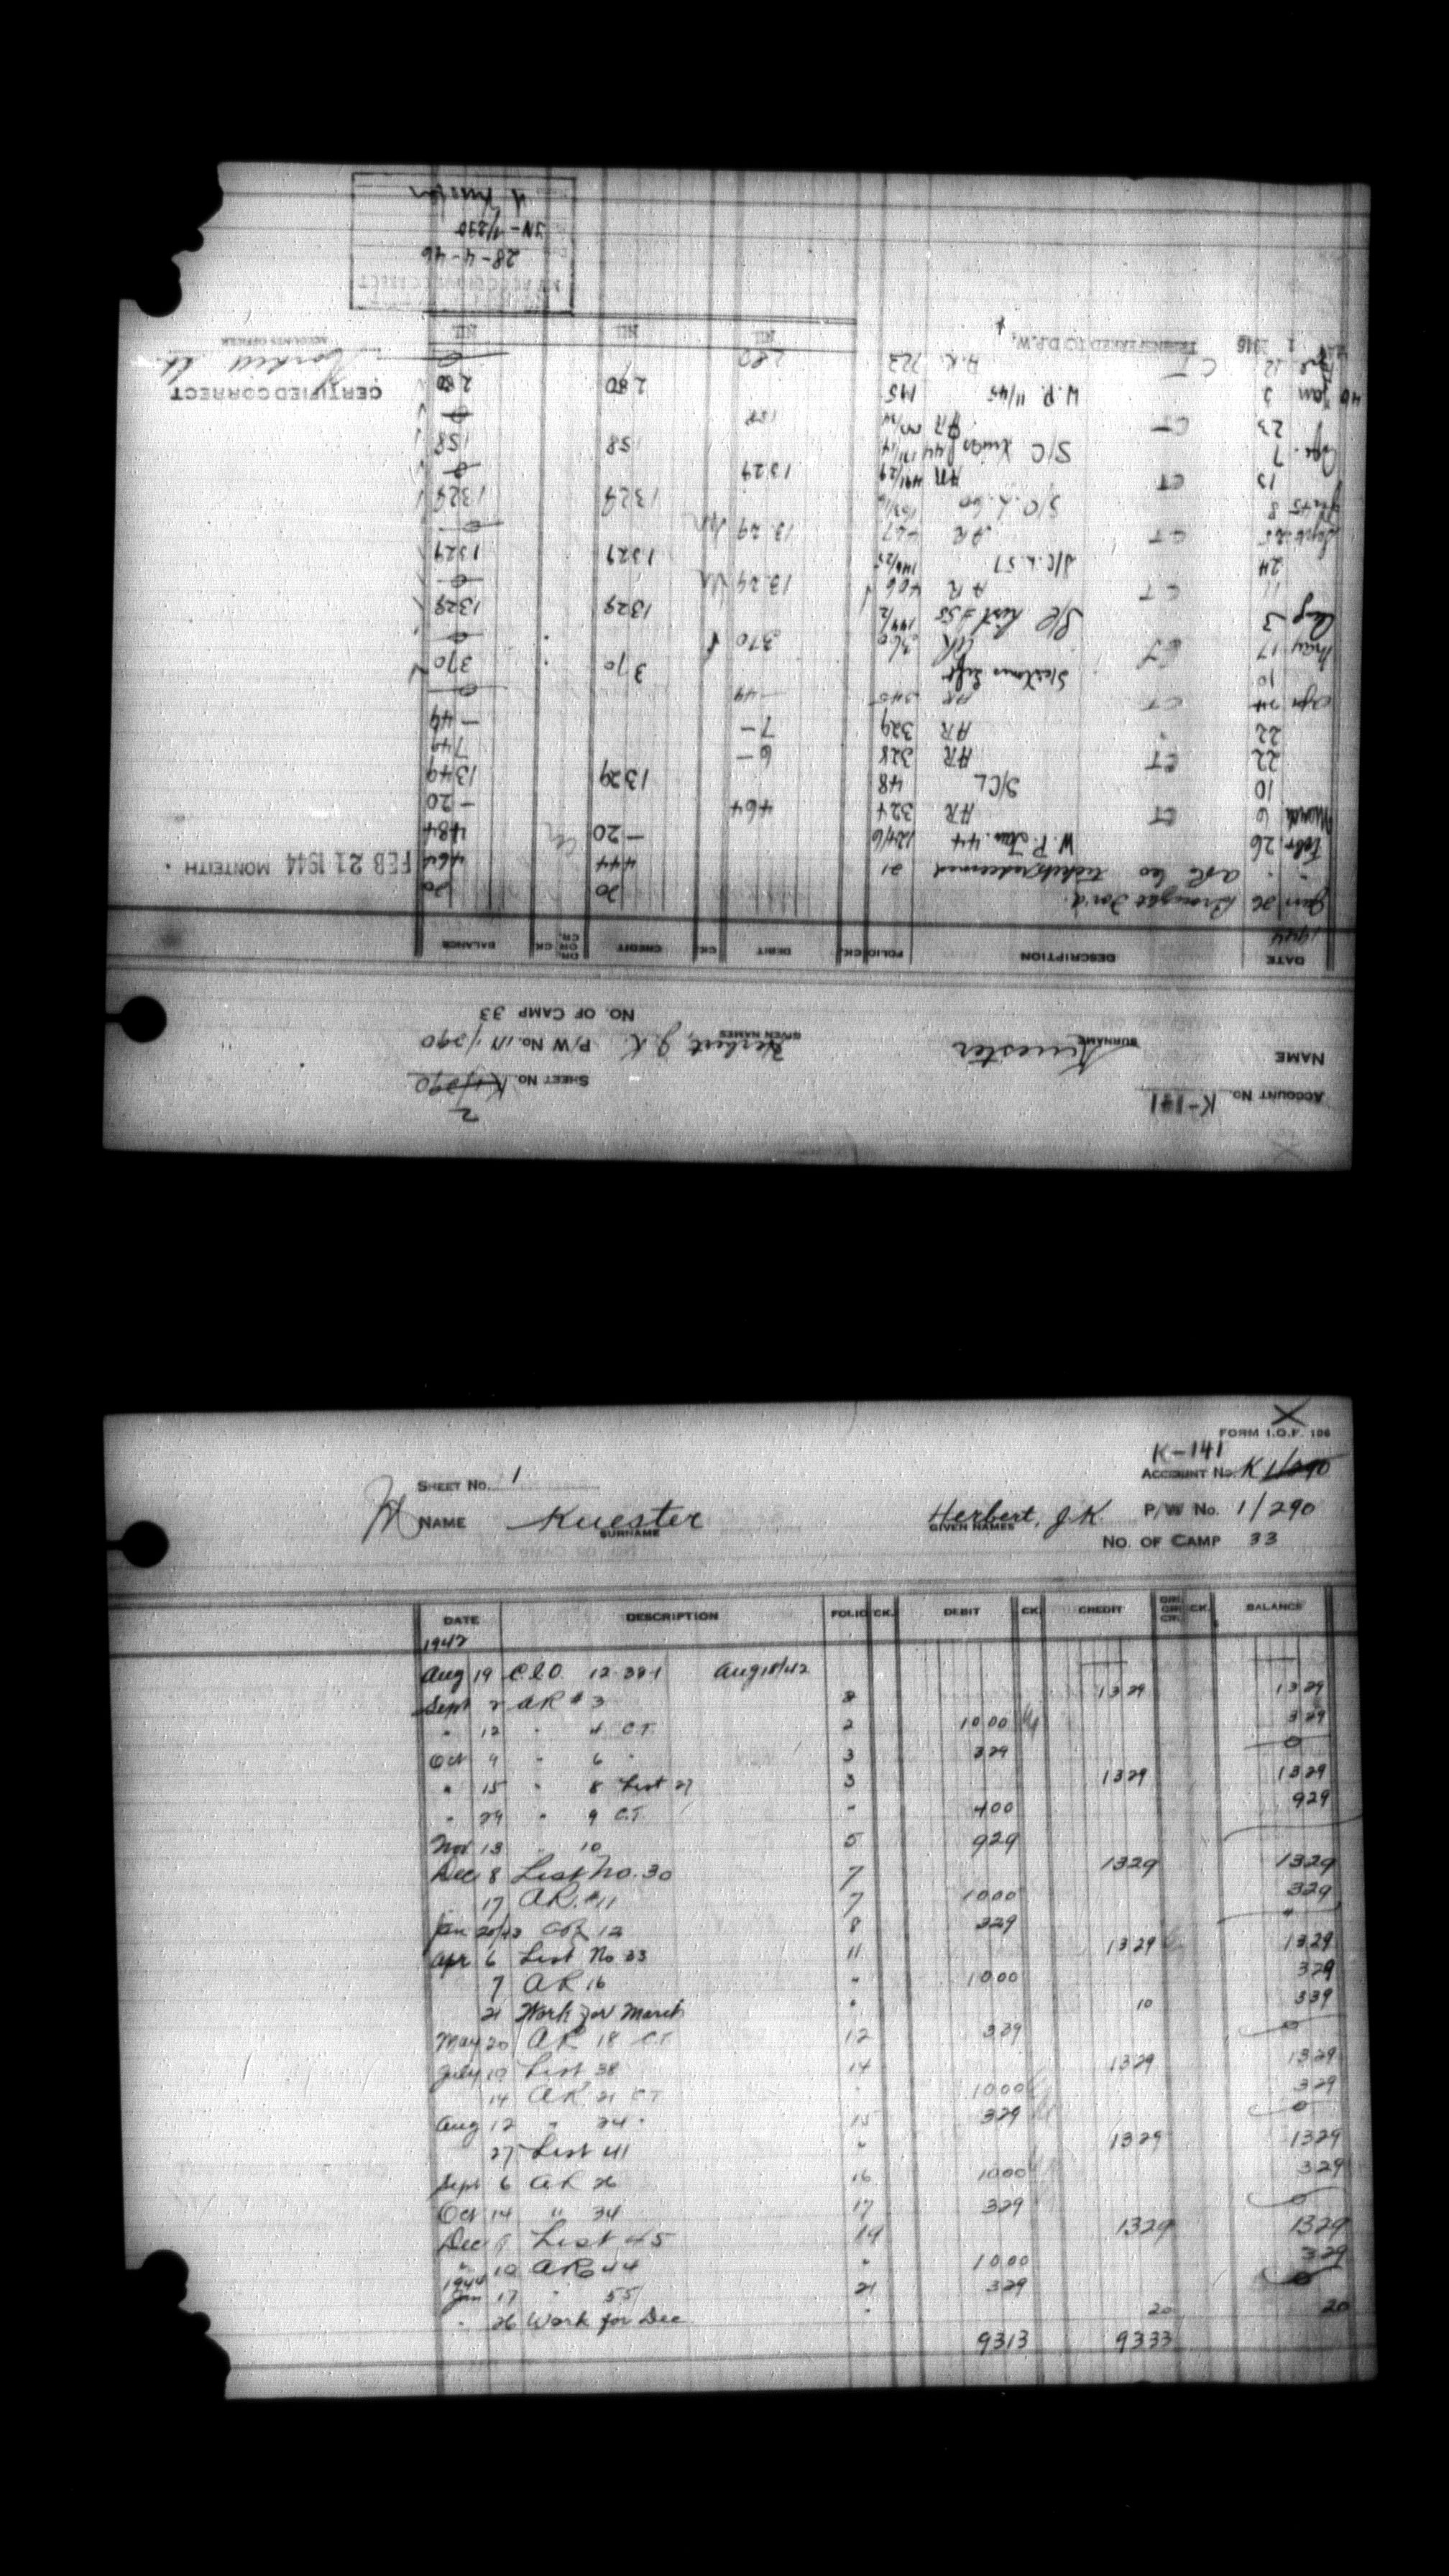 ACCOUNT No. K-141
2
SHEET No. K1/290
NAME Kuester SURNAME Herbert, J.K. GIVEN NAMES P/W No. 1/290
NO. OF CAMP 33
DATE DESCRIPTION FOLIO CK. DEBIT CK. CREDIT DR. OR CR. CK. BALANCE
1944
Jan 26 Brought For'd. 20 20
" " tickets redeemed 21 444 464 FEB 21 1944 MONTEITH.
Febr. 26 W.P. Jan. 44 — 20 484
March 6 CT AR 324 464 — 20
10 S/CL 48 1329 1349
22 CT AR 328 6 — 749
22 " AR 329 7 — — 49
Apr 24 CT AR 345 — 49 0
10 370 370
May 17 CT AR 360 370 0
Aug 3 S/C List 55 144/2 1329 1329
11 CT AR 406 1329 0
24 S/C L. 57 146/25 1329 1329
Sept. 25 CT AR 447 13.29 0
8 S/C L. 60 1329 1329
15 CT AR 491/29 1329 0
Apr. 7 S/C 158 158
23 CT AR 158 0
46 Jan 3 W.P. 11/45 195 280 280
12 CT A.R. 722 280 0
1 1946 TRANSFERRED TO D.P.W. NIL NIL NIL
CERTIFIED CORRECT
ACCOUNTS OFFICER
28-4-46
1/290
H Kuester
FORM I.O.F. 106
K-141
SHEET No. 1 ACCOUNT No. K1/290
NAME Kuester SURNAME Herbert, J.K. GIVEN NAMES P/W No. 1/290
NO. OF CAMP 33
DATE DESCRIPTION FOLIO CK. DEBIT CK. CREDIT DR. OR CR. CK. BALANCE
1942
Aug 19 C.I.O. 12-39-1 Aug 18/42 — —
Sept 2 AR #3 1329 1329
" 12 " 4 C.T. 2 1000 329
Oct 9 " 6 " 3 329 0
" 15 " 8 List 27 3 1329 1329
" 29 " 9 C.T. " 400 929
Nov 13 " 10 5 929
Dec 8 List No. 30 7 1329 1329
17 AR. #11 7 1000 329
Jan 20/43 12 8 329
Apr 6 List No 33 11 1329 1329
7 AR 16 " 1000 329
21 Work for March " 10 339
May 20 AR 18 C.T. 12 339 0
July 10 List 38 14 1329 1329
14 AR 21 C.T. " 1000 329
Aug 12 " 24 " 15 329 0
27 List 41 " 1329 1329
Sept 6 AR 26 16 1000 329
Oct 14 " 34 17 329 0
Dec 9 List 45 19 1329 1329
" 10 AR 44 " 1000 329
1944
Jan 17 " 55 21 329 0
" 26 Work for Dec " 20 20
9313 9333